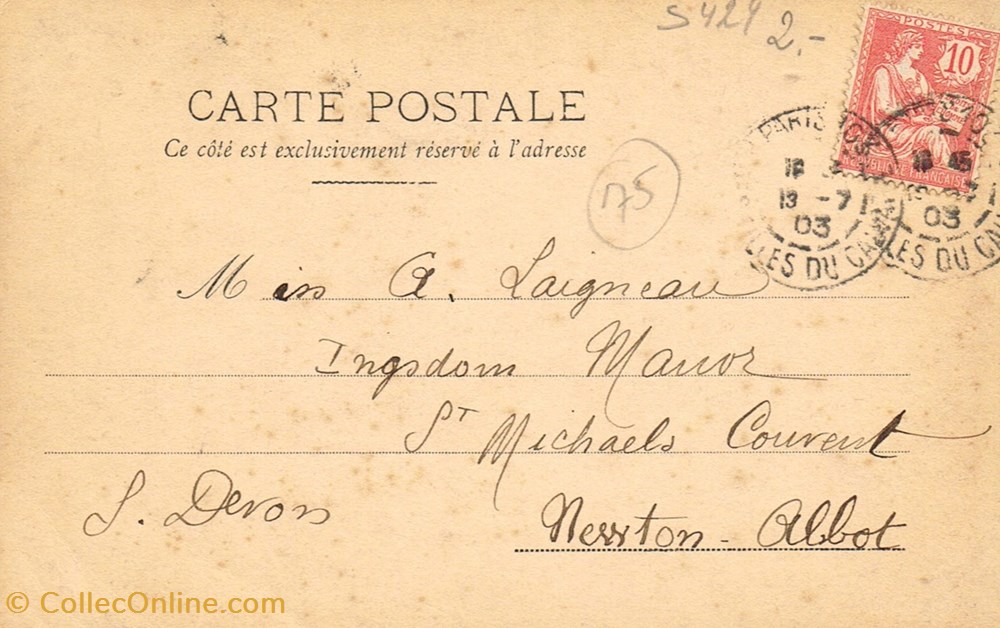 S424 2.-
POSTES
10
RÉPUBLIQUE FRANÇAISE
CARTE POSTALE
Ce côté est exclusivement réservé à l'adresse
175
PARIS
18
13 -7
03
DU
18 45
03
DU
Miss A. Laigneau
Ingsdom Manor
St Michaels Couvent
S. Devon
Newton - Abbot
© CollecOnline.com